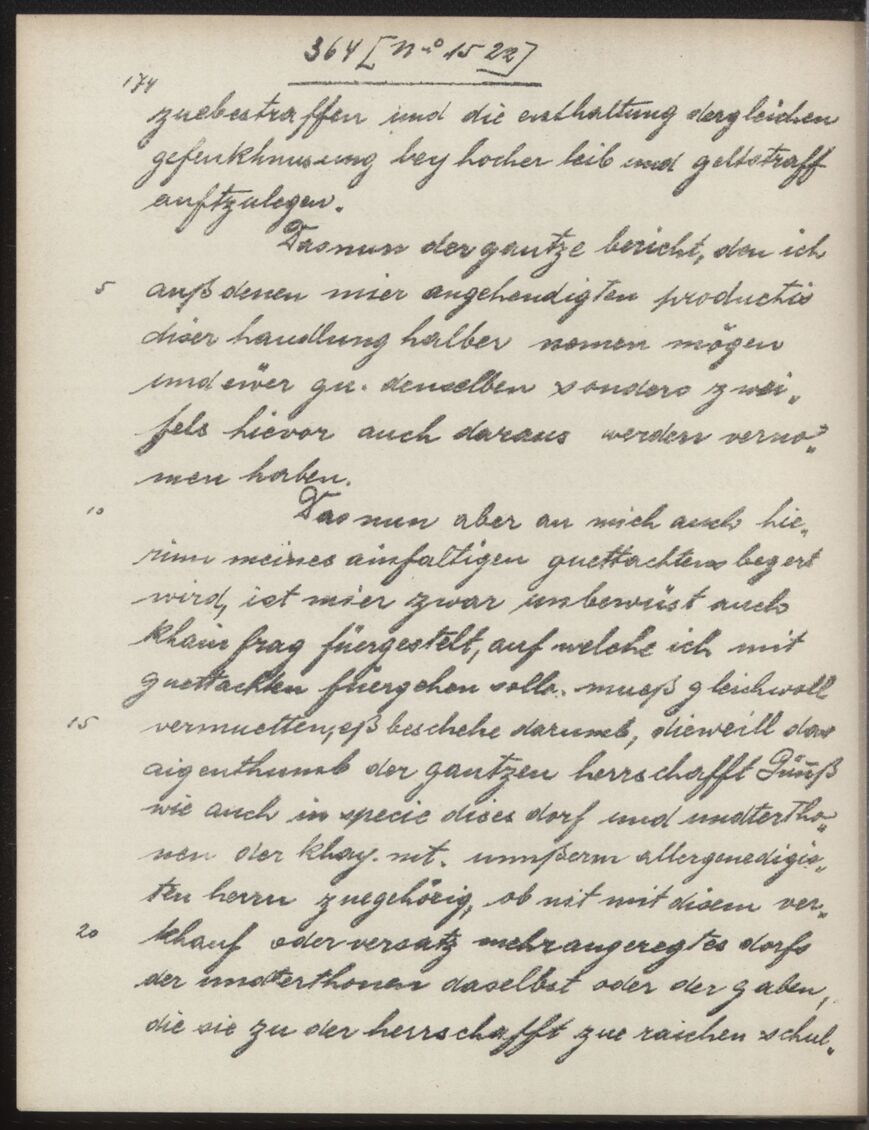 364 [No 1522]
174
zuebestraffen und die enthaltung dergleichen
gefenkhnussung bey hocher leib und geltstraff
auftzulegen.
Das nun der gantze bericht, den ich
5 auß denen mier angehendigten productis
diser handlung halber nemen mögen
und ewer gn. denselben sonders zwei„
fels hievor auch daraus werden verno„
men haben.
10 Das nun aber an mich auch hie„
rinn meines ainfaltigen guettachtens begert
wird, ist mier zwar unbewüst auch
khain frag füergestelt, auf welche ich mit
guettachten füergehen solle. mueß gleichwoll
15 vermuetten, eß beschehe darumb, dieweill das
aigenthumb der gantzen herrschafft Günß
wie auch in specie dises dorf und undtertho„
nen der khay. mt. unnßerm allergenedigis„
ten herrn zuegehörig, ob nit mit disem ver„
20 khauf oder versatz mehrangeregtes dorfs
der undterthonen daselbst oder der gaben,
die sie zu der herrschafft zue raichen schul„